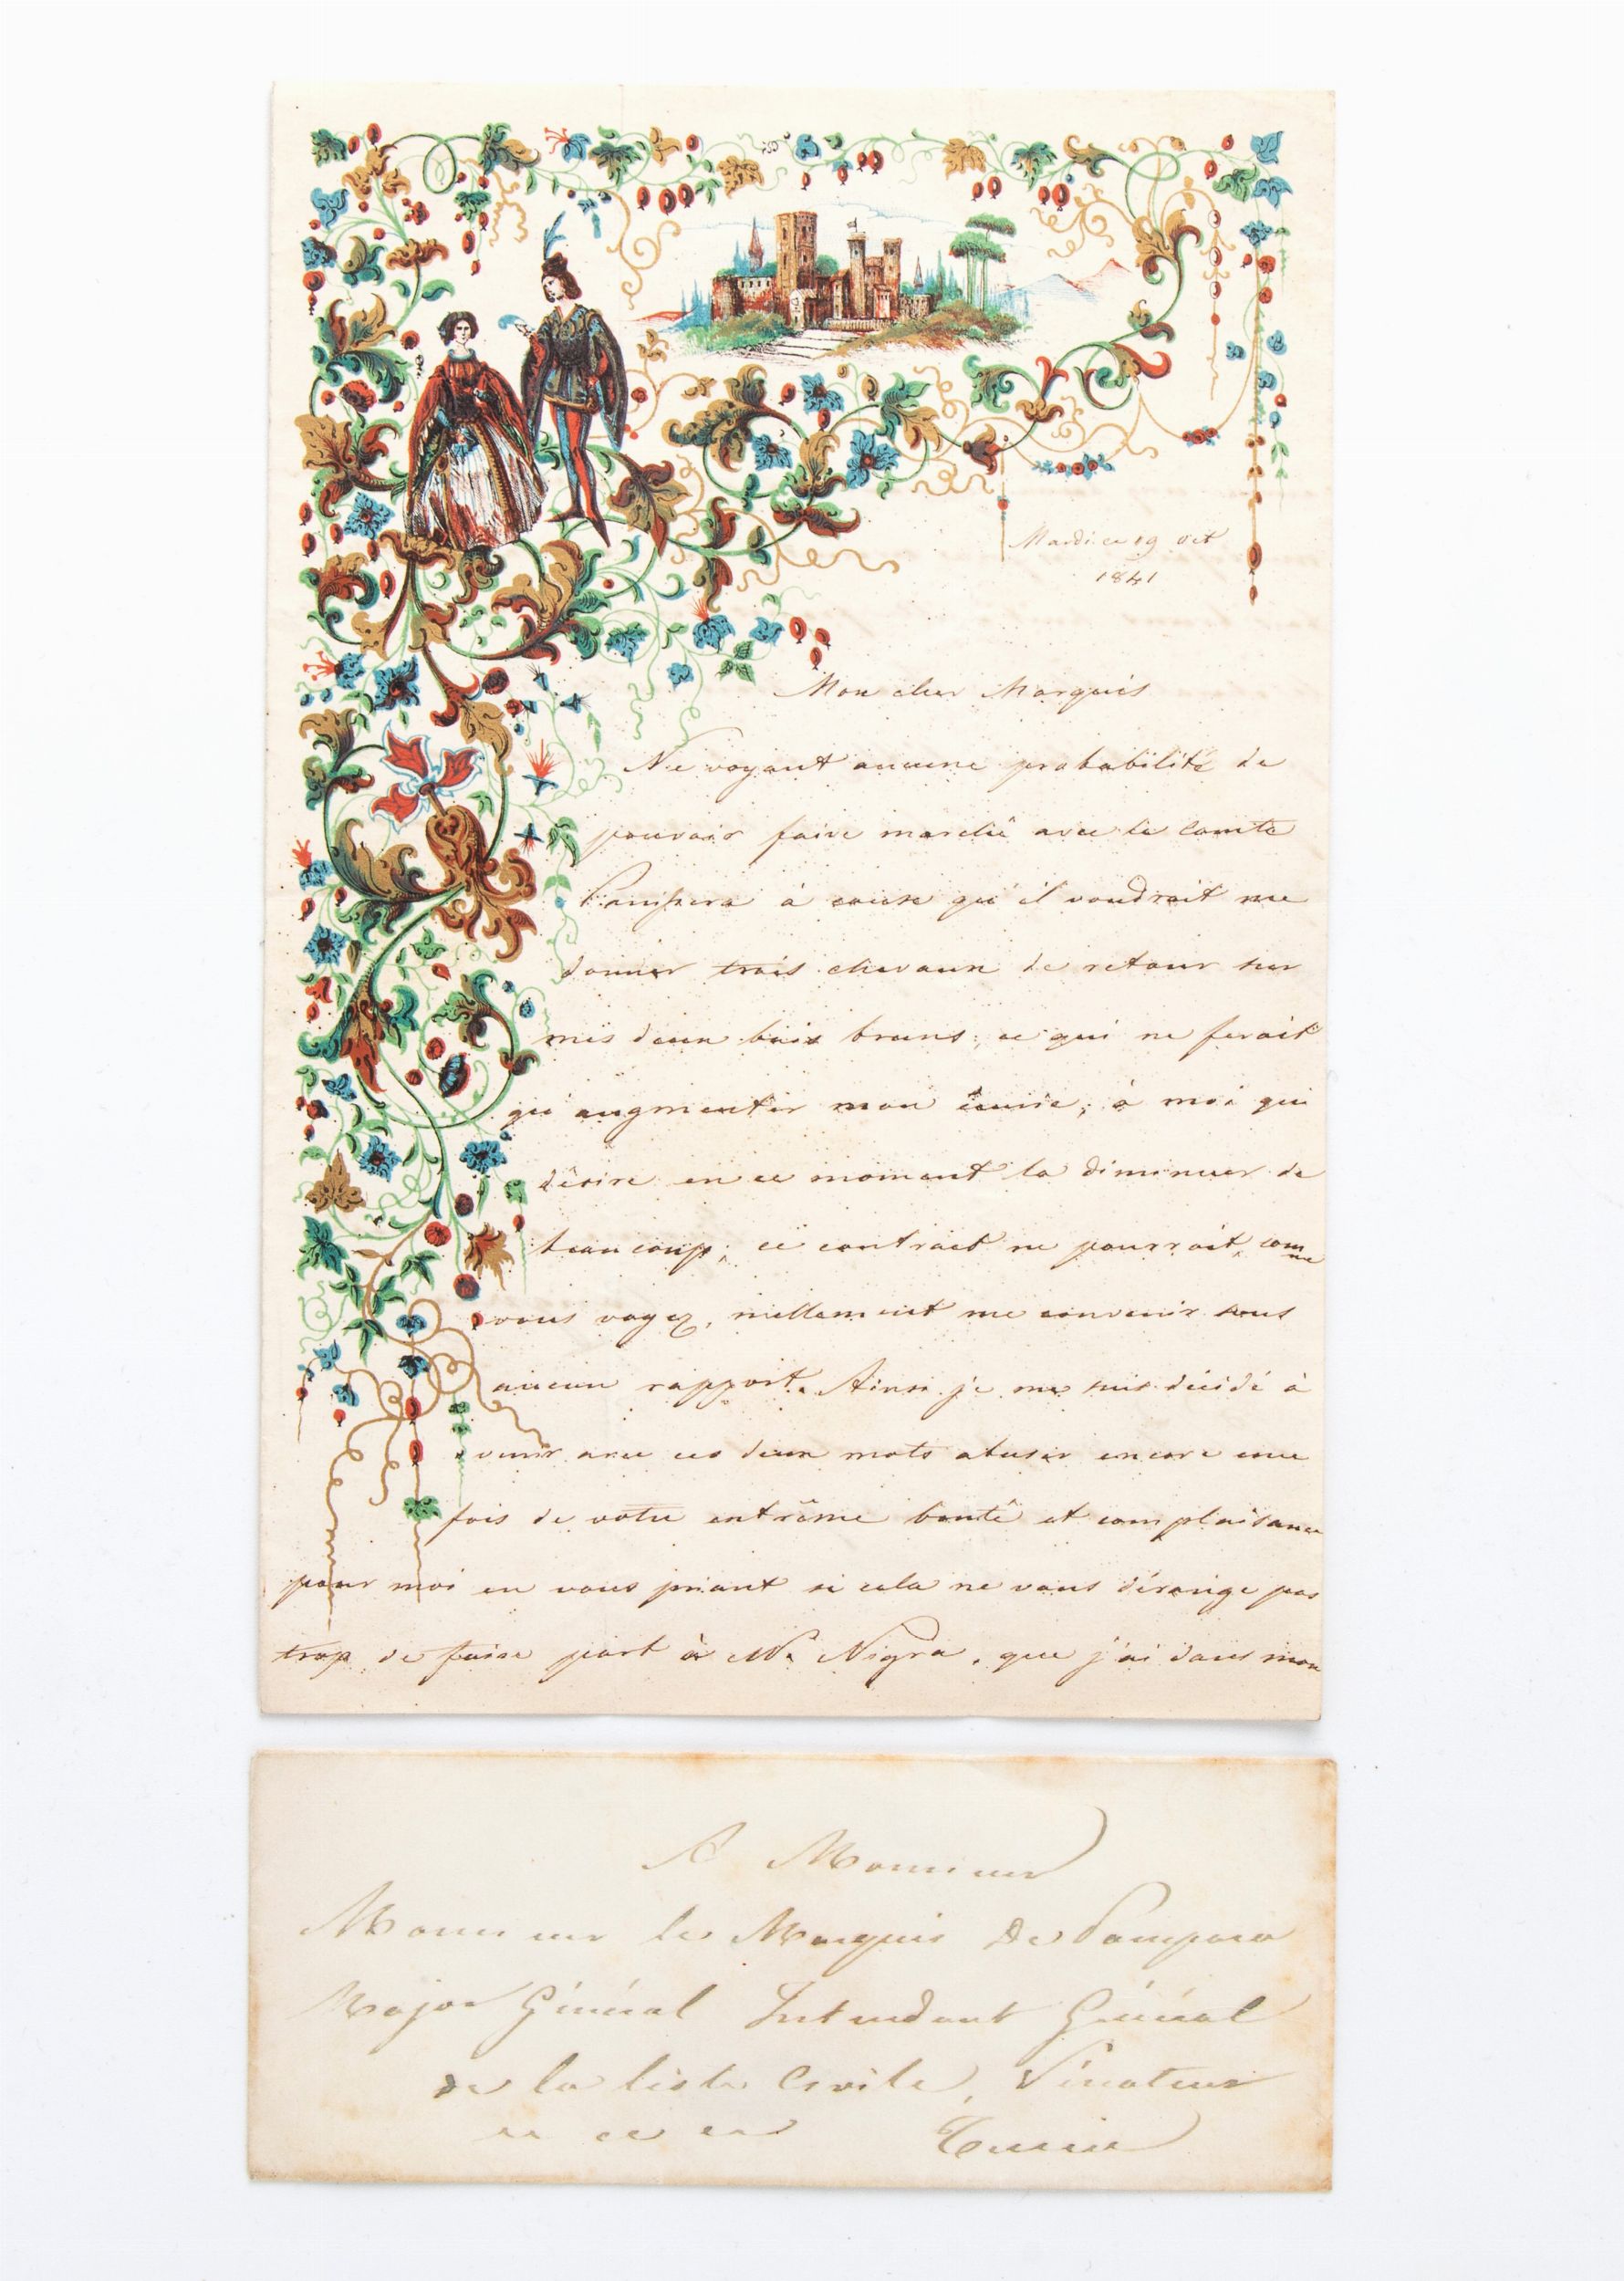 Mardi ce 19 oct
1841
Mon cher Marquis
Ne voyant aucune probabilité de
pouvoir faire marché avec le Comte
à cause qu'il voudroit me
donner trois chevaux de retour sur
mes deux bais bruns, ce qui ne feroit
qu'augmenter mon écurie, à moi qui
désire en ce moment la diminuer de
beaucoup; ce contract ne pourroit, comme
vous voyez, nullement me convenir sous
aucun rapport. Ainsi je me suis décidé à
venir avec ces deux mots abuser encore une
fois de votre extrême bonté et complaisance
pour moi en vous priant si cela ne vous dérange pas
trop de faire part à Mr. Nigra, que j'ai dans mon
A Monsieur
Monsieur le Marquis De Pampara
Major Général Intendant Général
de la liste Civile, Sénateur
Turin